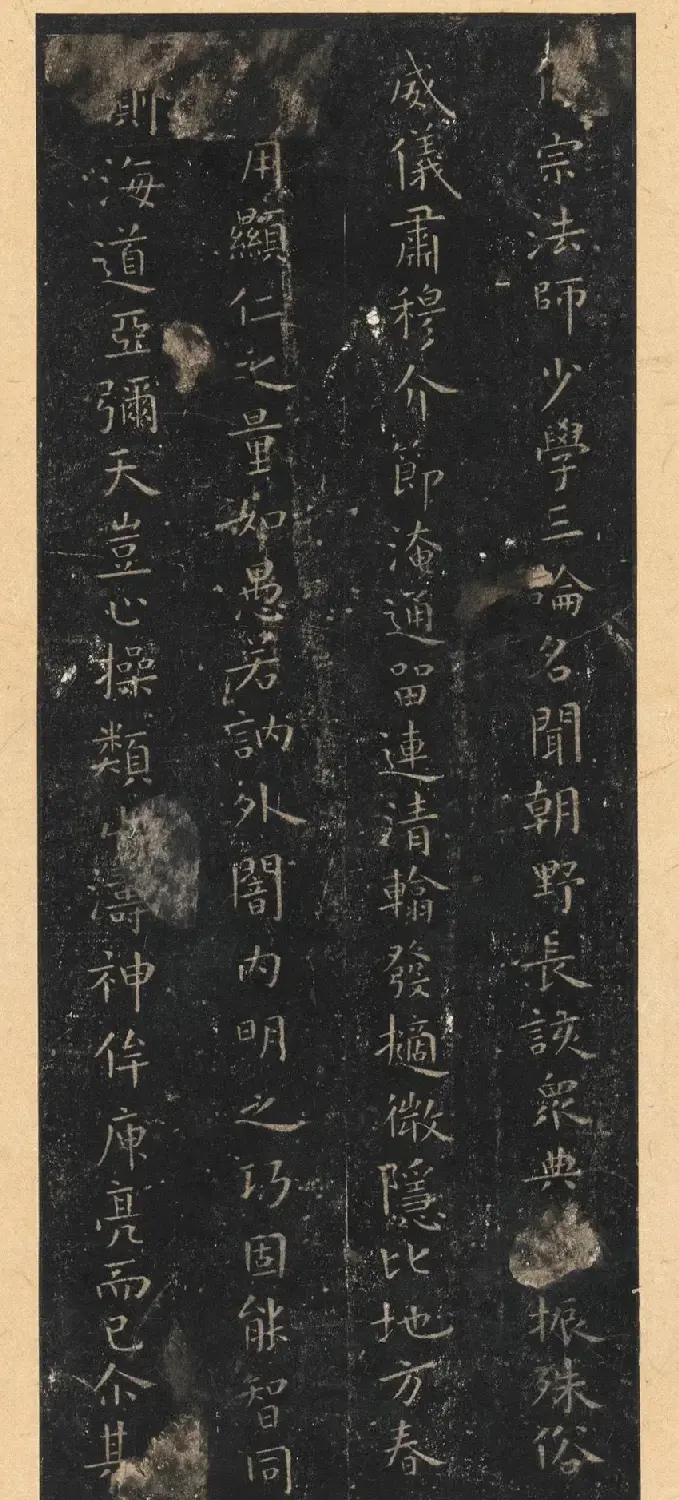 宗法師少學三論名聞朝野長該眾典振殊俗
威儀肅穆介節淹通留連清翰發擿微隱比地方春
用顯仁之量如愚若訥外闇内明之巧固能智同
則海道亞彌天豈心操類山濤神侔庾亮而已尒其